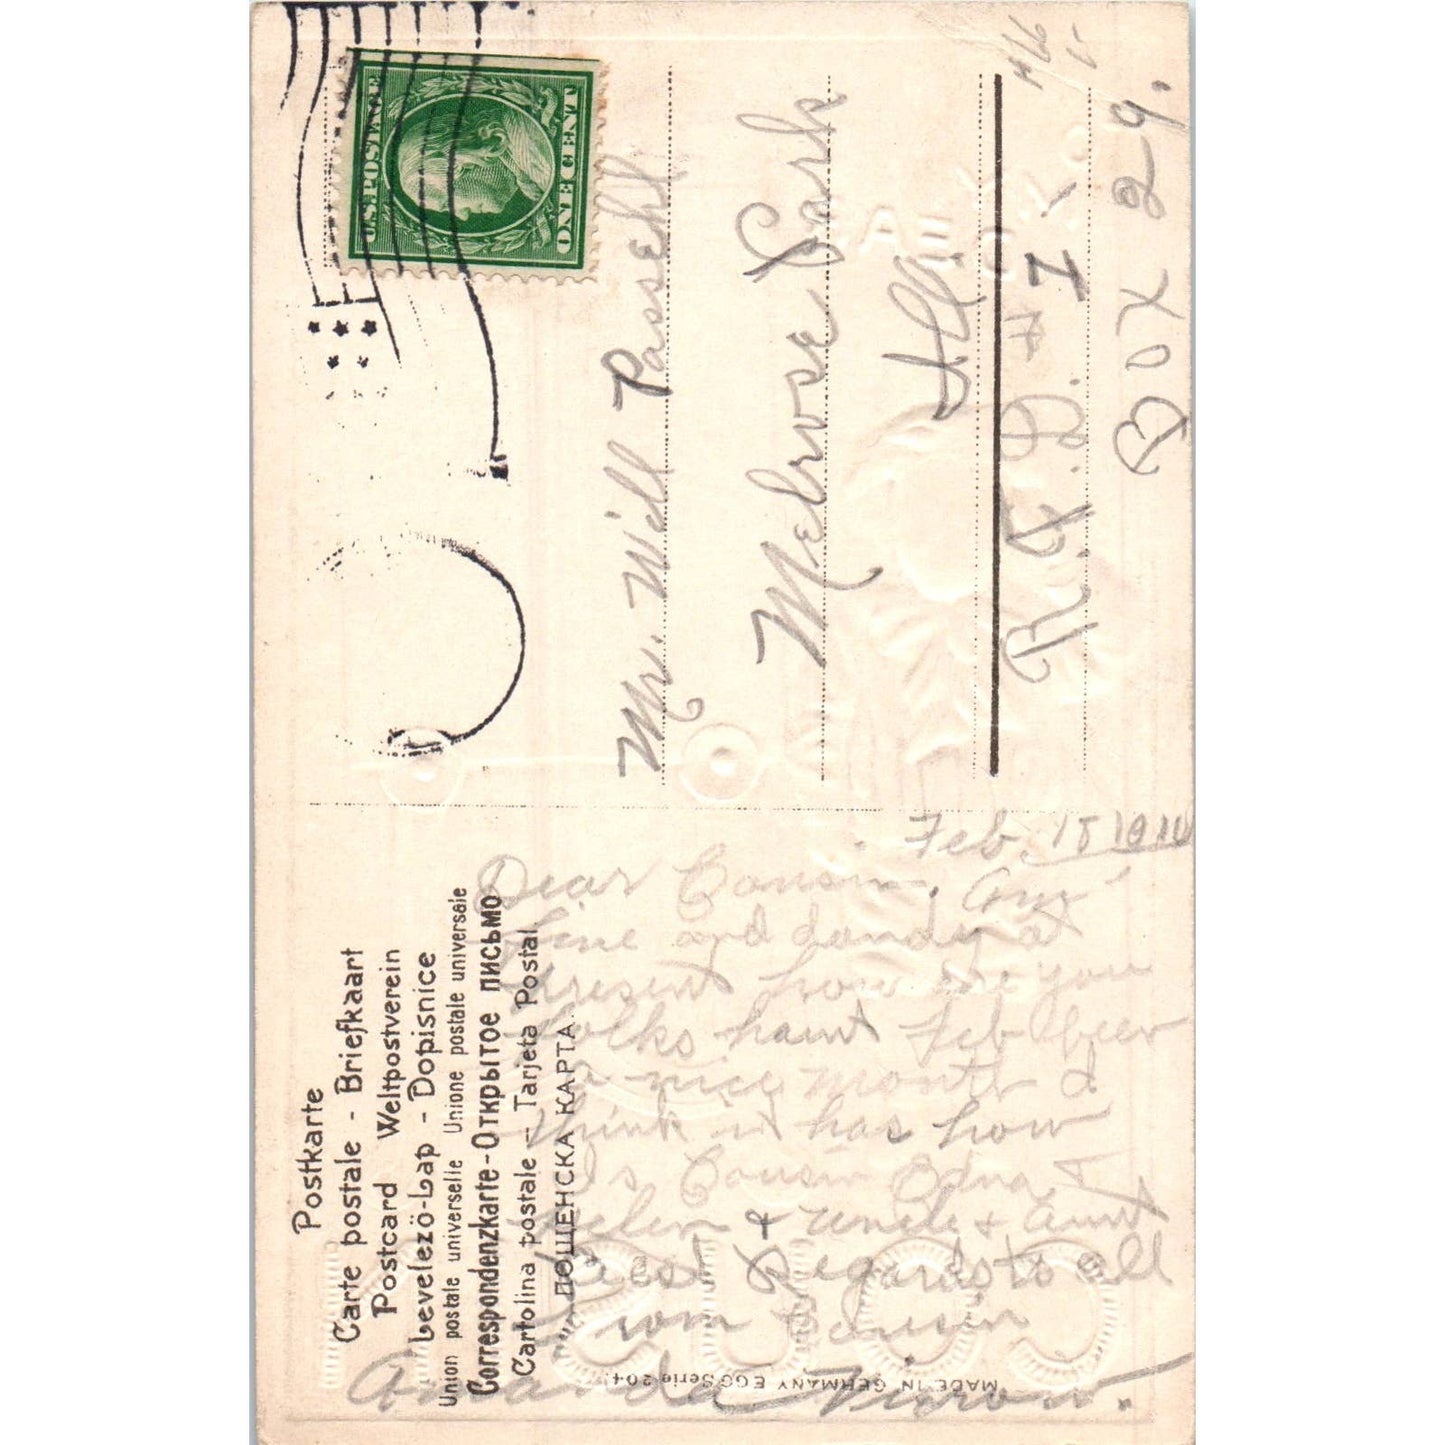 Postkarte
Carte postale - Briefkaart
Postcard Weltpostverein
Levelezö-Lap - Dopisnice
Union postale universelle Unione postale universale
Correspondenzkarte - Открытое письмо
Cartolina postale - Tarjeta Postal
ДОПИСНА КАРТА
U.S. POSTAGE
ONE CENT
Mr. Will Passehl
Melrose Park
Ill
R.F.D. #1
Box 29.
Feb. 15 1910
Dear Cousin. Am
fine and dandy at
present how are you
folks hasnt Feb been
a nice month I
think it has how
is Cousin Edna &
Helen & uncle & aunt
Best Regards to all
from Cousin
Amanda
MADE IN GERMANY EGC Serie 204